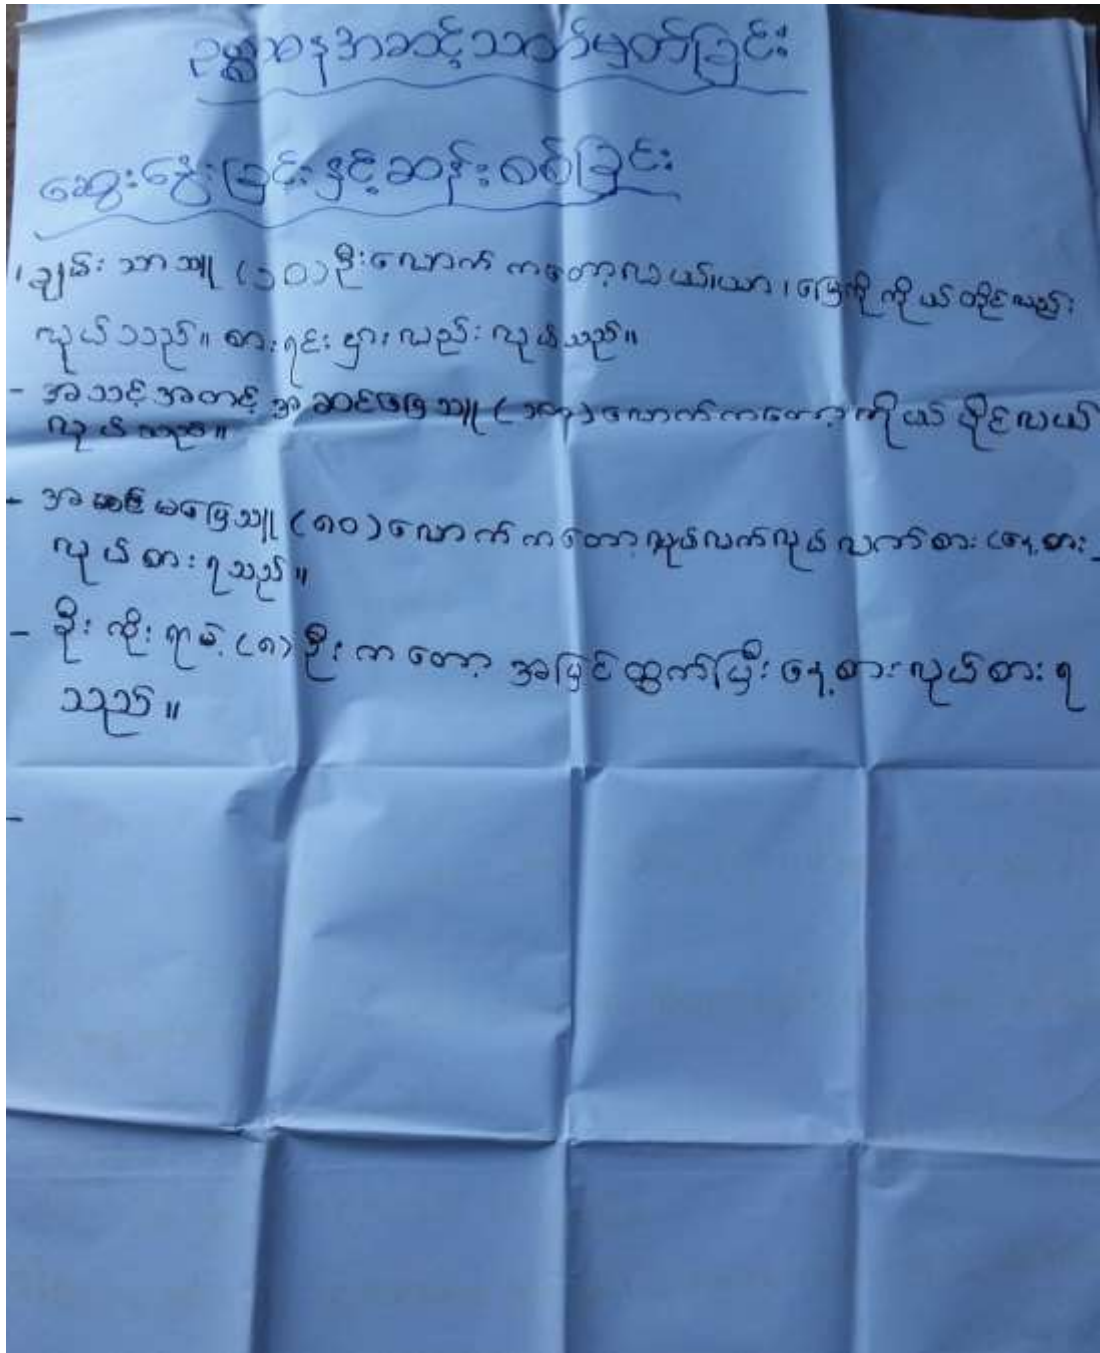 ဥစ္စာဓနအဆင့်သတ်မှတ်ခြင်း
ဆွေးနွေးခြင်းနှင့်ဆန်းစစ်ခြင်း
ချမ်းသာသူ (၁၀) ဦးလောက်ကတော့လယ်ယာ၊မြေကိုကိုယ်တိုင်လည်း
လုပ်သည်။ စာရင်းငှားလည်းလုပ်သည်။
- အသင့်အတင့်အဆင်ပြေသူ လောက်ကတော့ကိုယ်ပိုင်လယ်
လုပ်သည်။
- အဆင်မပြေသူ (၈၀) လောက်ကတော့လုပ်လက်လုပ်လက်စား နေ့စား
လုပ်စားရသည်။
- ဦး (၈) ဦးကတော့ အပြင်ထွက်ပြီး နေ့စားလုပ်စားရ
သည်။
-